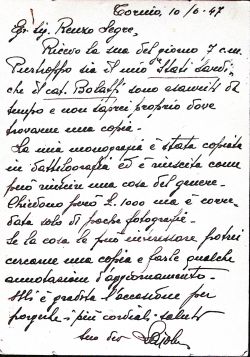 Torino, 10/6-47
Egr. sig. Renzo Segre,
Ricevo la sua del giorno 7 c.m.
Purtroppo sia il mio "Stati Sardi"
che il cat. Bolaffi sono esauriti da
tempo e non saprei proprio dove
trovarne una copia.
La mia monografia è stata copiata
in dattilografia ed è riuscita come
può riuscire una cosa del genere.
Chiedono però L. 1000 ma è corre-
data solo di poche fotografie.
Se la cosa Le può interessare potrei
cercarne una copia e farle qualche
annotazione d'aggiornamento.
Mi è gradita l'occasione per
porgerle i più cordiali saluti
Suo dev